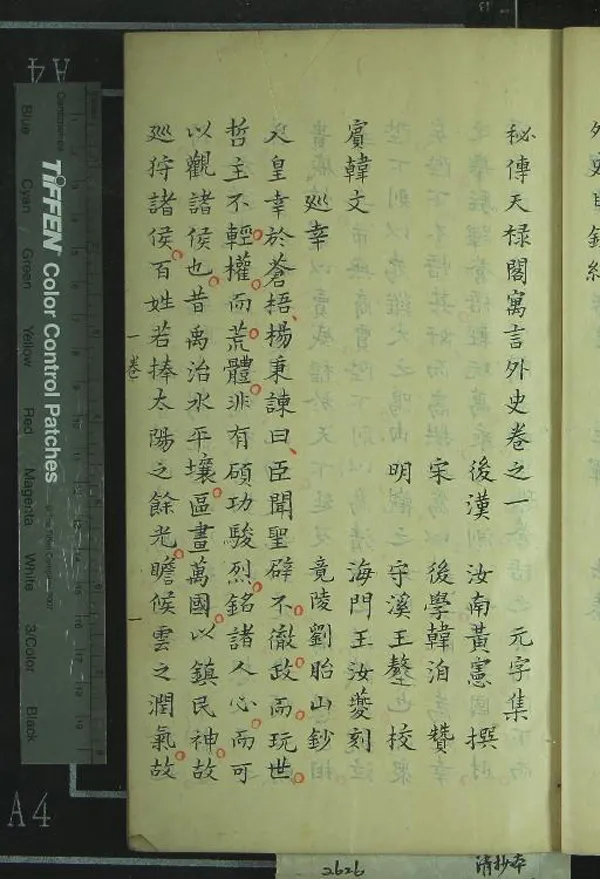 秘傳天祿閣寓言外史卷之一 元字集
後漢 汝南黃憲 撰
宋 後學韓洎 贊
明 守溪王鏊也 校
海門王汝夔刻
竟陵劉貽山鈔
賓韓文
廵幸
人皇幸於蒼梧楊秉諫曰臣聞聖辟不徹政而玩世
哲主不輕權而荒體非有碩功駿烈銘諸人心而可
以觀諸侯也昔禹治水平壤區畫萬國以鎮民神故
廵狩諸侯百姓若捧太陽之餘光瞻候雲之潤氣故
一卷
一
A4
Centimetres
TIFFEN Color Control Patches
Blue
Cyan
Green
Yellow
Red
Magenta
White
3/Color
Black
A4
2626
清抄本